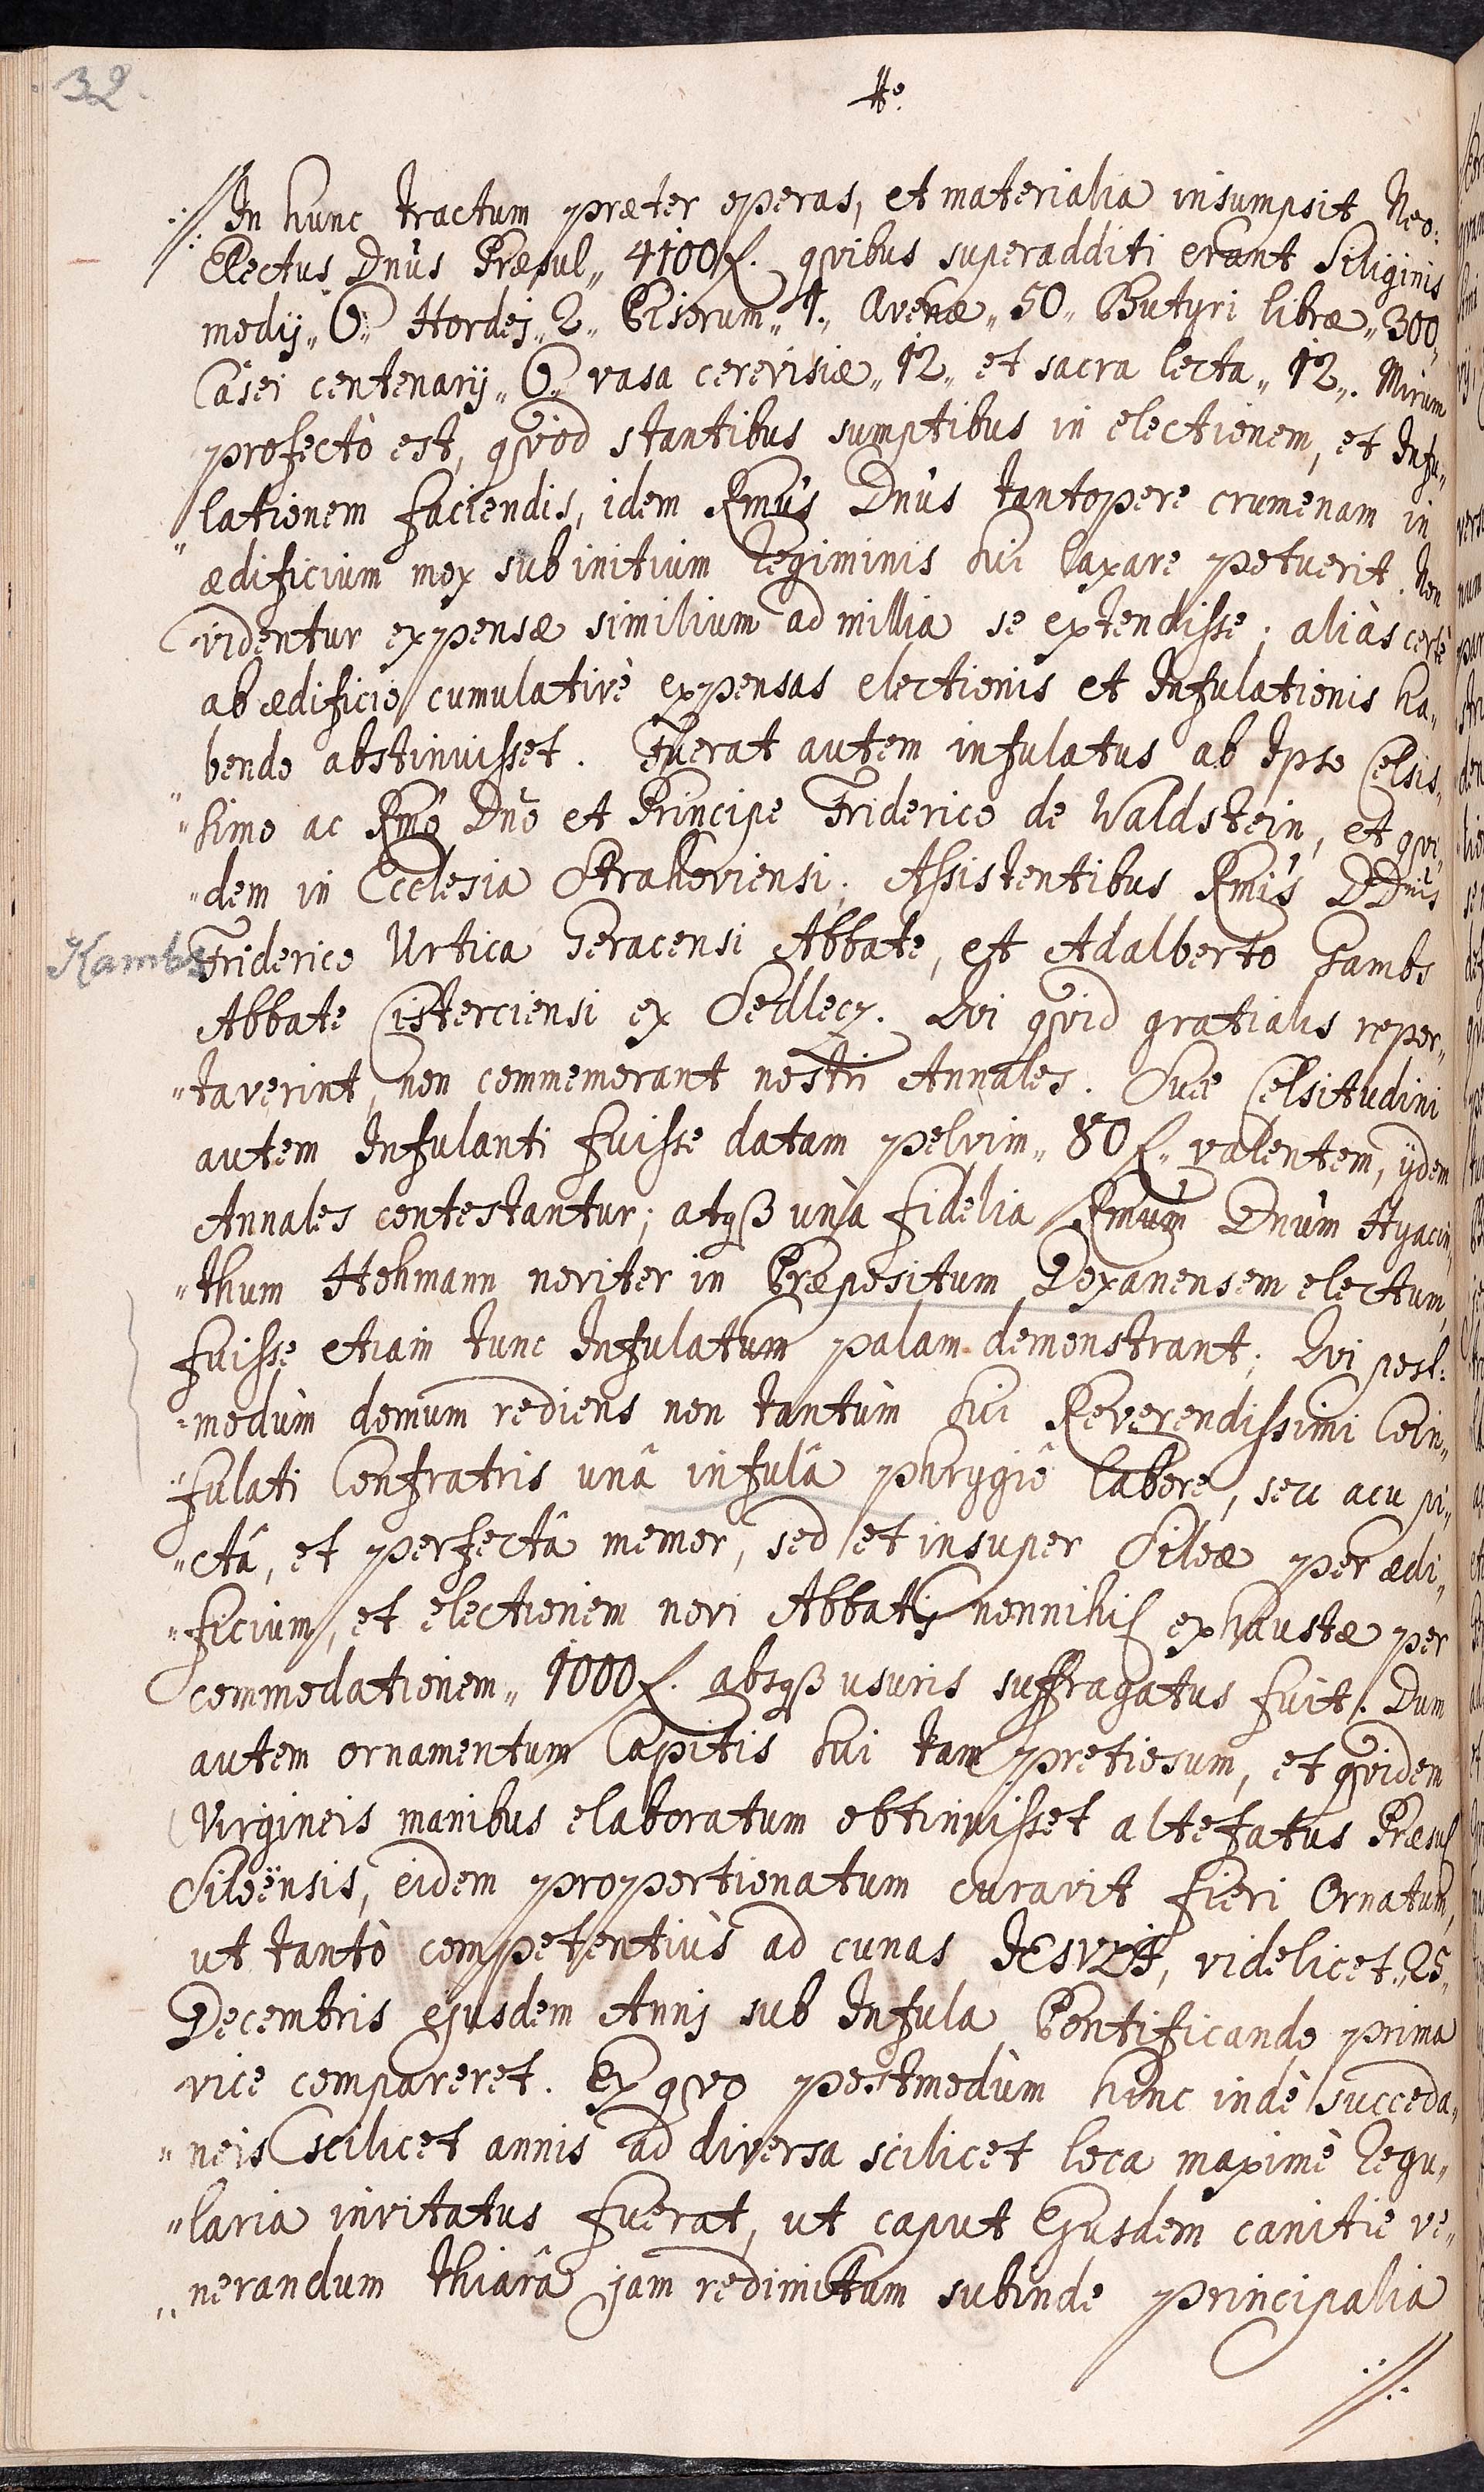 32.
In hunc tractum præter operas, et materialia insumpsit Neo:
Electus Dnus Præsul„ 4100 f. qvibus superadditi erant Siliginis
modij„ 6„ Hordej„ 2„ Pisorum„ 1„ Avenæ„ 50„ Butyri libræ„ 300„
Casei centenarij„ 6„ vasa cerevisiæ„ 12„ et sacra lecta„ 12„. Mirum
profectò est, qvòd stantibus sumptibus in electionem, et Infu„
lationem faciendis, idem Rmus Dnus tantopere crumenam in
ædificium mox sub initium Regiminis sui laxare potuerit. Non
videntur expensæ similium ad millia se extendisse; aliàs certè
ab ædificio cumulativè expensas electionis et Infulationis ha„
„bendo abstinuisset. Fuerat autem infulatus ab Ipso Celsis„
„simo ac Rmo Dno et Principe Friderico de Waldstein, et qvi„
„dem in Ecclesia Strahoviensi; Assistentibus Rmis DDnis
Kambs
Friderico Urtica Geracensi Abbate, et Adalberto Gambs
Abbate Cisterciensi ex Sedlecz. Qvi qvid gratialis repor„
„taverint, non commemorant nostri Annales. Suæ Celsitudini
autem Infulanti fuisse datam pelvim„ 80 f. valentem, ijdem
Annales contestantur; atqß unà fidelia Rmum Dnum Hyacin„
„thum Hohmann noviter in Præpositum Doxanensem electum,
fuisse etiam tunc Infulatum palam demonstrant; Qvi post:
„modùm domum rediens non tantùm sui Reverendissimi Coin„
„fulati Confratris unâ infulâ phrygiô labore, seu acu pi„
„ctâ, et perfectâ memor, sed et insuper Siloæ per ædi„
„ficium, et electionem novi Abbatis nonnihil exhaustæ per
commodationem„ 1000 f. absqß usuris suffragatus fuit. Dum
autem ornamentum Capitis sui tam pretiosum, et qvidem
Virgineis manibus elaboratum obtinuisset altefatus Præsul
Siloënsis, eidem proportionatum curavit fieri Ornatum,
ut tantò competentiùs ad cunas JESULI, videlicet„ 25„
Decembris ejusdem Annj sub Infula Pontificando prima
vice compareret. Ex qvo postmodùm hinc indè succeda„
„neis scilicet annis ad diversa scilicet loca maximè Regu„
„laria invitatus fuerat, ut caput Ejusdem canitie ve„
„nerandum thiarâ jam redimitum subinde principalia